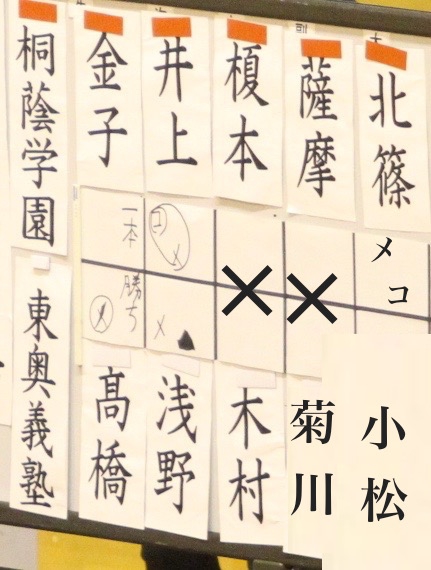 北篠
メ
コ
小松
薩摩
×
菊川
榎本
×
木村
井上
コ
メ
メ
▲
浅野
金子
一本
勝ち
メ
髙橋
桐蔭学園
東奥義塾